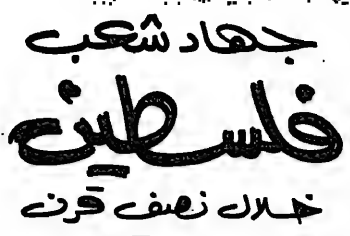 جهاد شعب
فلسطين
خلال نصف قرن